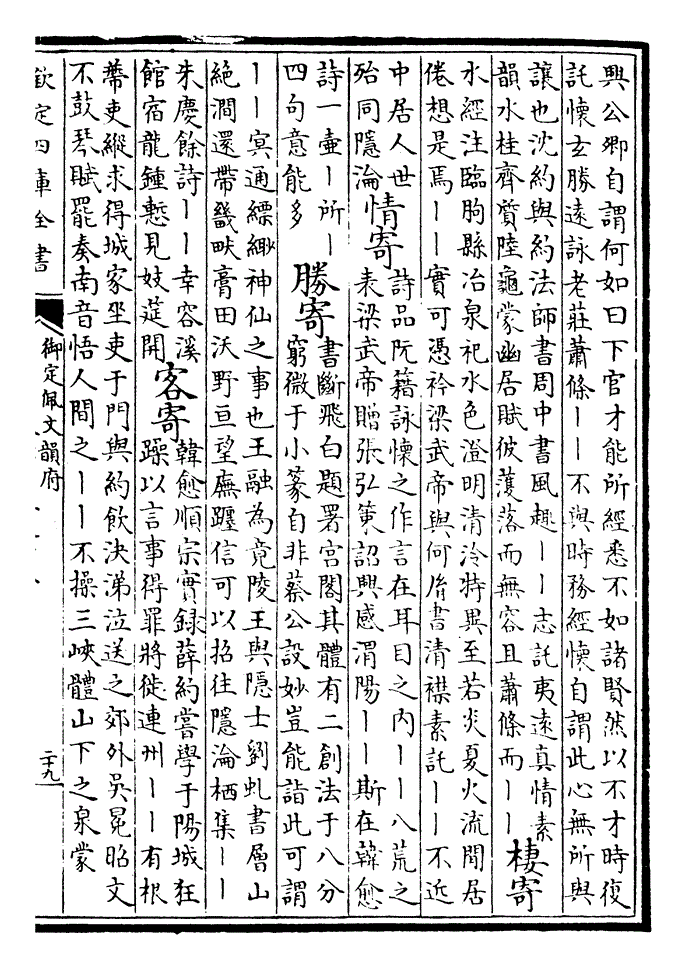 興公卿自謂何如曰下官才能所經悉不如諸賢然以不才時復
託懷玄勝遠詠老莊蕭條丨丨不與時務經懷自謂此心無所與
讓也沈約與約法師書周中書風趣丨丨志託夷遠真情素
韻水桂齊質陸龜蒙幽居賦彼濩落而無容且蕭條而丨丨
棲寄
水經注臨朐縣冶泉祀水色澄明清泠特異至若炎夏火流閒居
倦想是焉丨丨實可憑衿梁武帝與何𦙍書清襟素託丨丨不近
中居人世
殆同隱淪
情寄
詩品阮籍詠懷之作言在耳目之内丨丨八荒之
表梁武帝贈張弘策詔興感渭陽丨丨斯在韓愈
詩一壷丨所丨
四句意能多
勝寄
書斷飛白題署宫閣其體有二創法于八分
窮微于小篆自非蔡公設妙豈能詣此可謂
丨丨𡨋通縹緲神仙之事也王融為竟陵王與隱士劉虬書層山
絶澗還帶畿畎膏田沃野亘望廡躔信可以招往隱淪栖集丨丨
朱慶餘詩丨丨幸容溪
館宿龍鍾慙見妓筵開
客寄
韓愈順宗實録薛約嘗學于陽城狂
躁以言事得罪將徙連州丨丨有根
帶吏縱求得城家坐吏于門與約飲決涕泣送之郊外吳冕昭文
不鼓琴賦罷奏南音悟人間之丨丨不操三峽體山下之泉蒙
欽定四庫全書
御定佩文韻府
二十九